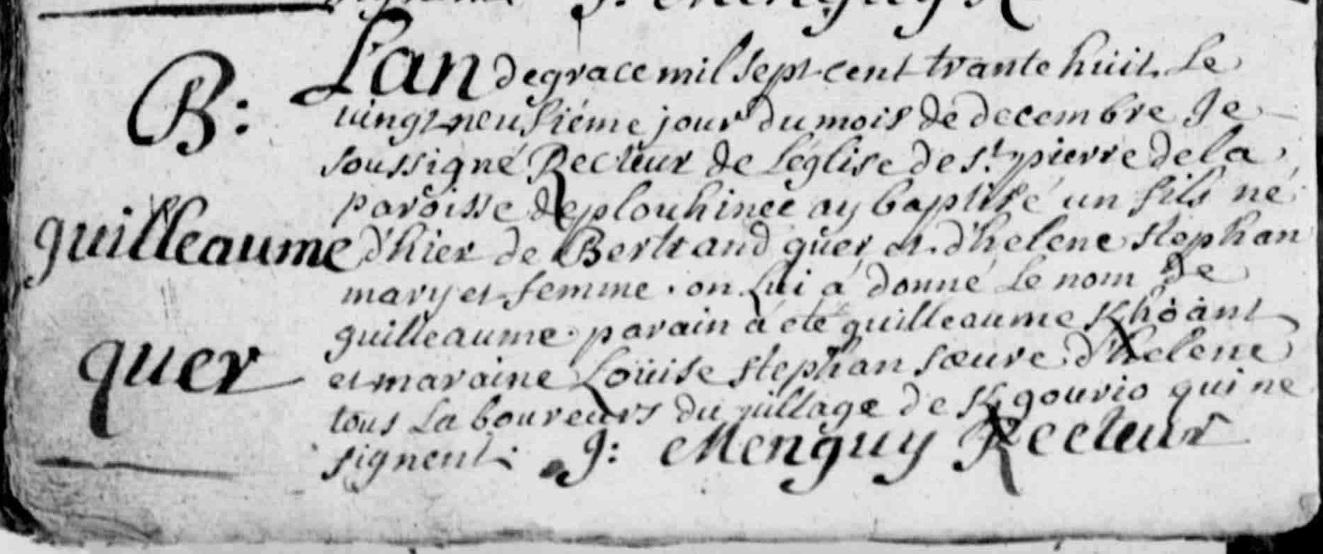 B:
guilleaume
quer
L'an de grace mil sept cent trante huit. Le
vingt neufiéme jour du mois de decembre Je
soussigné Recteur de L'église de st. pierre de la
paroisse de plouhinec ay baptisé un fils né
d'hier de Bertrand quer et d'helene stephan
mary et femme. on Lui a donné Le nom de
guilleaume. parain a été guilleaume
et maraine Loüise stephan sœure d'helene
tous Laboureurs du village de qui ne
signent. J: Menguy Recteur